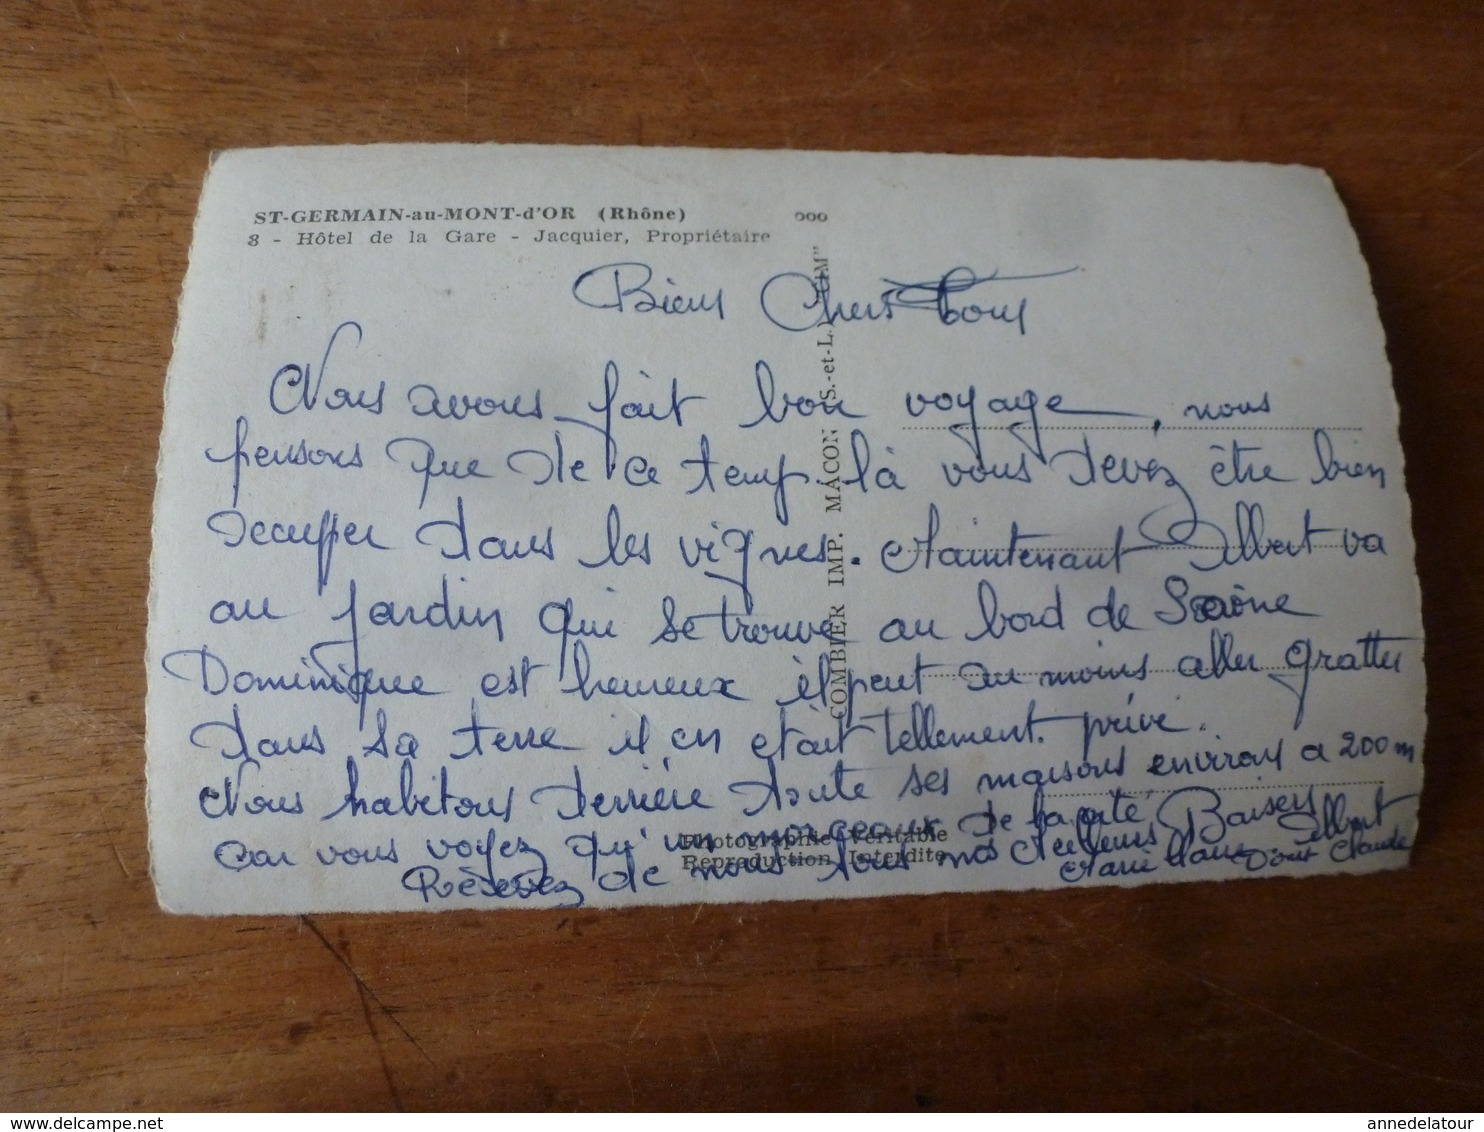 ST-GERMAIN-au-MONT-d'OR (Rhône)
8 - Hôtel de la Gare - Jacquier, Propriétaire
Biens Chers Tous
Nous avons fait bon voyage, nous
pensons que de ce temps là vous devez être bien
occuper dans les vignes. Maintenant Albert va
au jardin qui se trouve au bord de Saône
Dominique est heureux il peut au moins aller gratter
dans sa terre il en était tellement privé.
Nous habitons derrière toute ses maisons environs a 200m
car vous voyez qu'un morceaux de la cité,
Recevez de nous tous nos Meilleurs Baisers
Albert
Marie Dont Claude
COMBIER IMP. MÂCON (S.-et-L.) "CIM"
Photographie Véritable
Reproduction Interdite
annedelatour